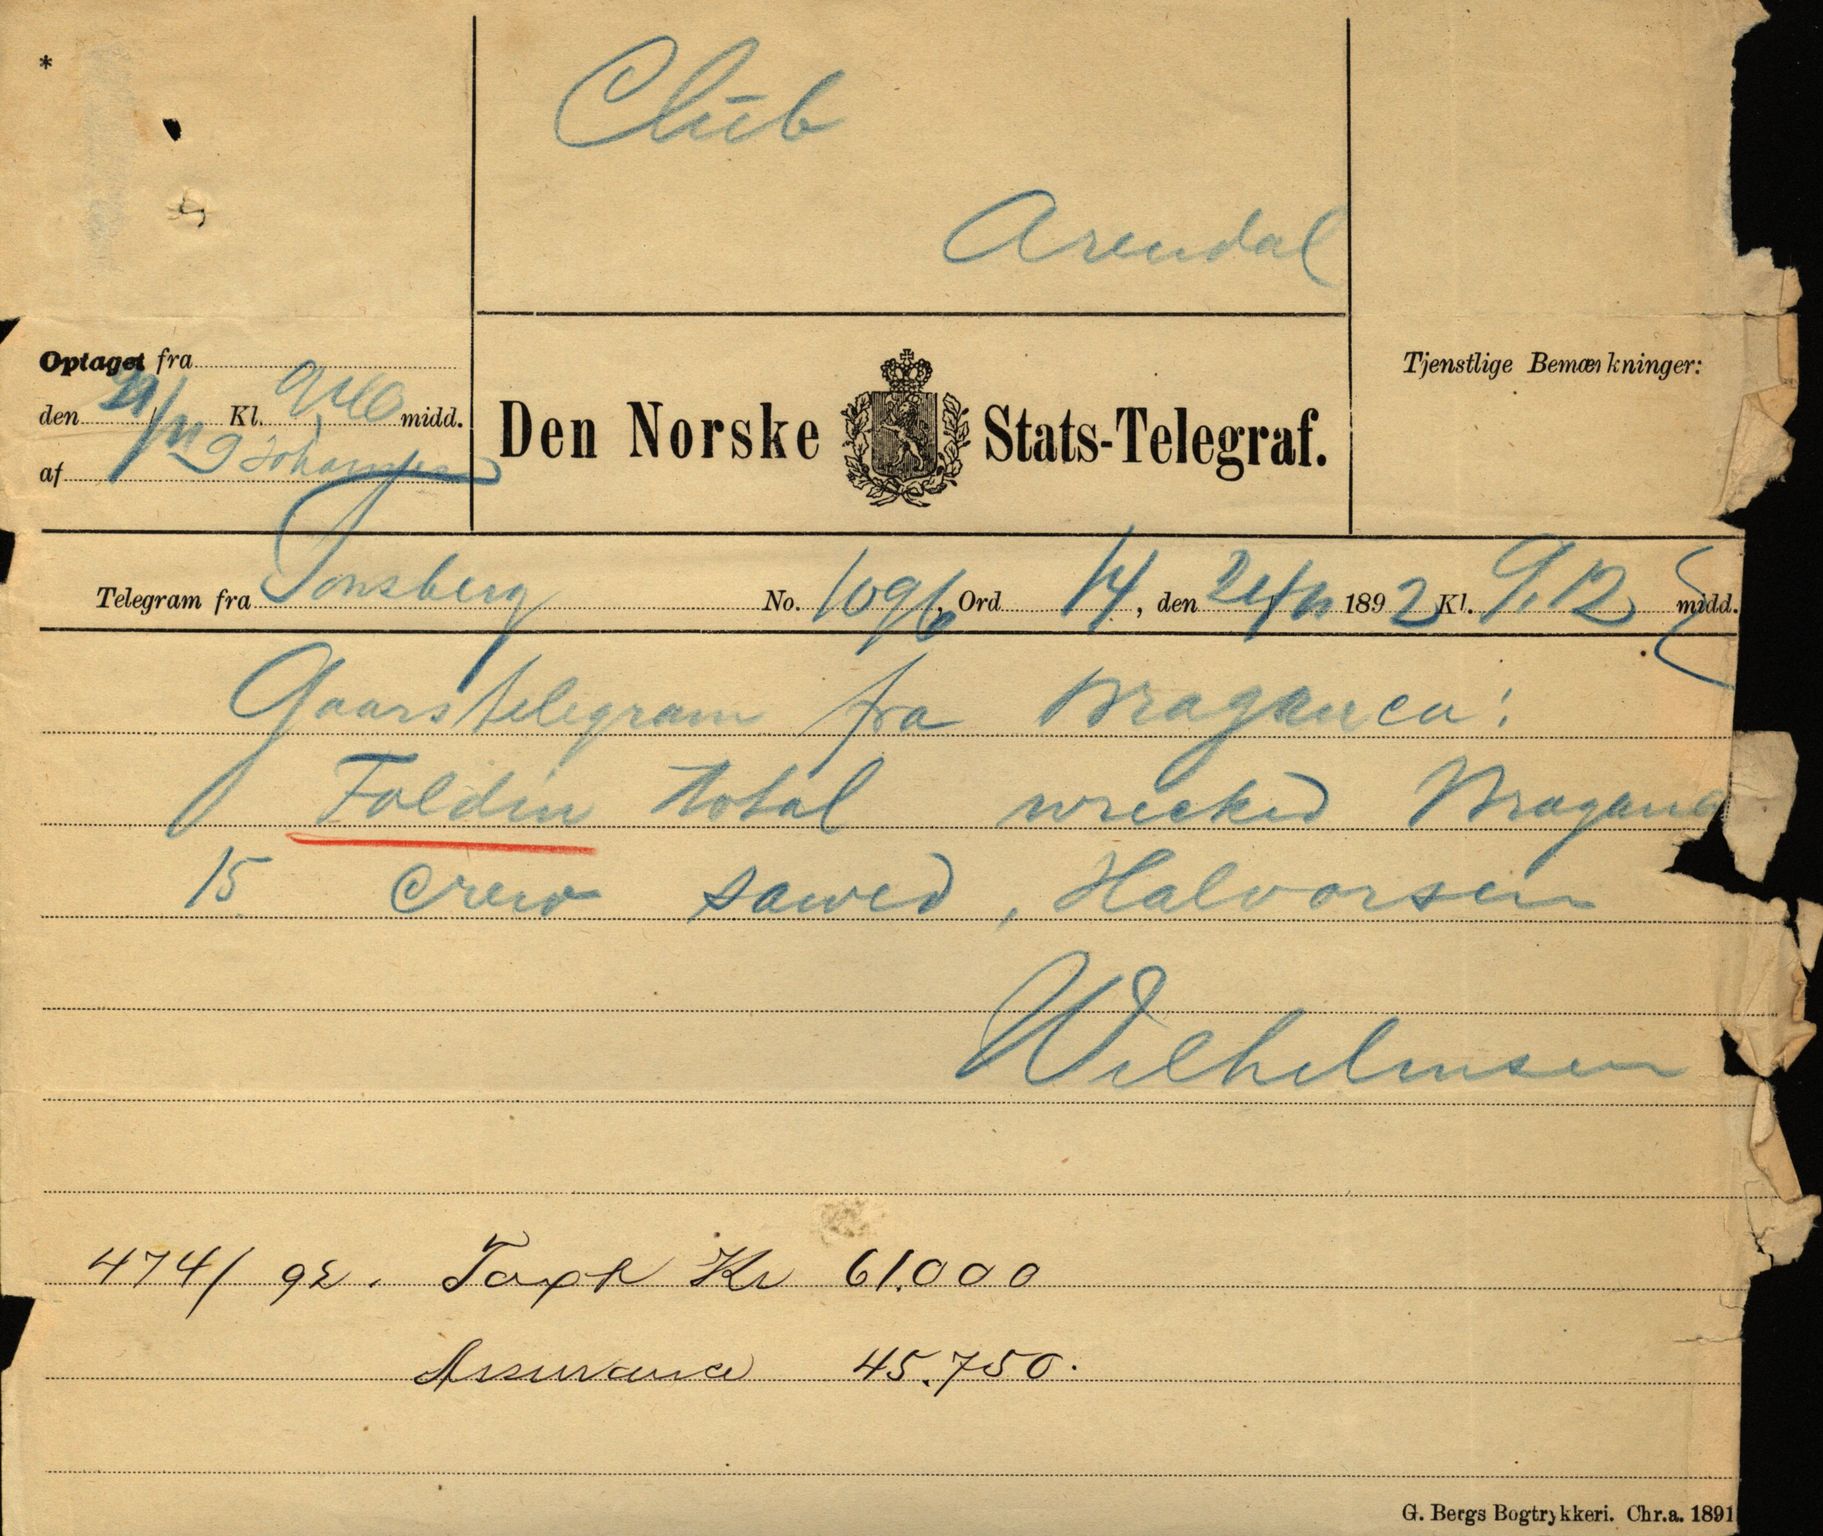 *
Club
Arendal
Optaget fra
den Kl. midd.
af Johansen
Den Norske Stats-Telegraf.
Tjenstlige Bemærkninger:
Telegram fra Tønsberg No. 1096, Ord 14, den 24/11 1892 Kl. 9,12 midd.
Gaarstelegram fra Braganca:
Foldin total wrecked Bragana
15 crew sawed, Halvorsen
Wilhelmsen
474/92. Taxt Kr 61.000
Assurance 45.750.
G. Bergs Bogtrykkeri. Chr.a. 1891